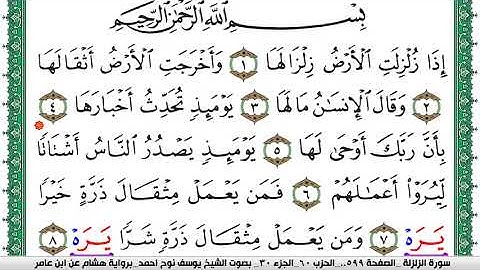 بِسْمِ اللَّهِ الرَّحْمَٰنِ الرَّحِيمِ
إِذَا زُلْزِلَتِ الْأَرْضُ زِلْزَالَهَا ١ وَأَخْرَجَتِ الْأَرْضُ أَثْقَالَهَا
٢ وَقَالَ الْإِنسَانُ مَا لَهَا ٣ يَوْمَئِذٍ تُحَدِّثُ أَخْبَارَهَا ٤
بِأَنَّ رَبَّكَ أَوْحَىٰ لَهَا ٥ يَوْمَئِذٍ يَصْدُرُ النَّاسُ أَشْتَاتًا
لِّيُرَوْا أَعْمَالَهُمْ ٦ فَمَن يَعْمَلْ مِثْقَالَ ذَرَّةٍ خَيْرًا
يَرَهْ ٧ وَمَن يَعْمَلْ مِثْقَالَ ذَرَّةٍ شَرًّا يَرَهْ ٨
سورة الزلزلة _الصفحة ٥٩٩.. الحزب ٦٠_ الجزء ٣٠_ بصوت الشيخ يوسف نوح احمد_ برواية هشام عن ابن عامر